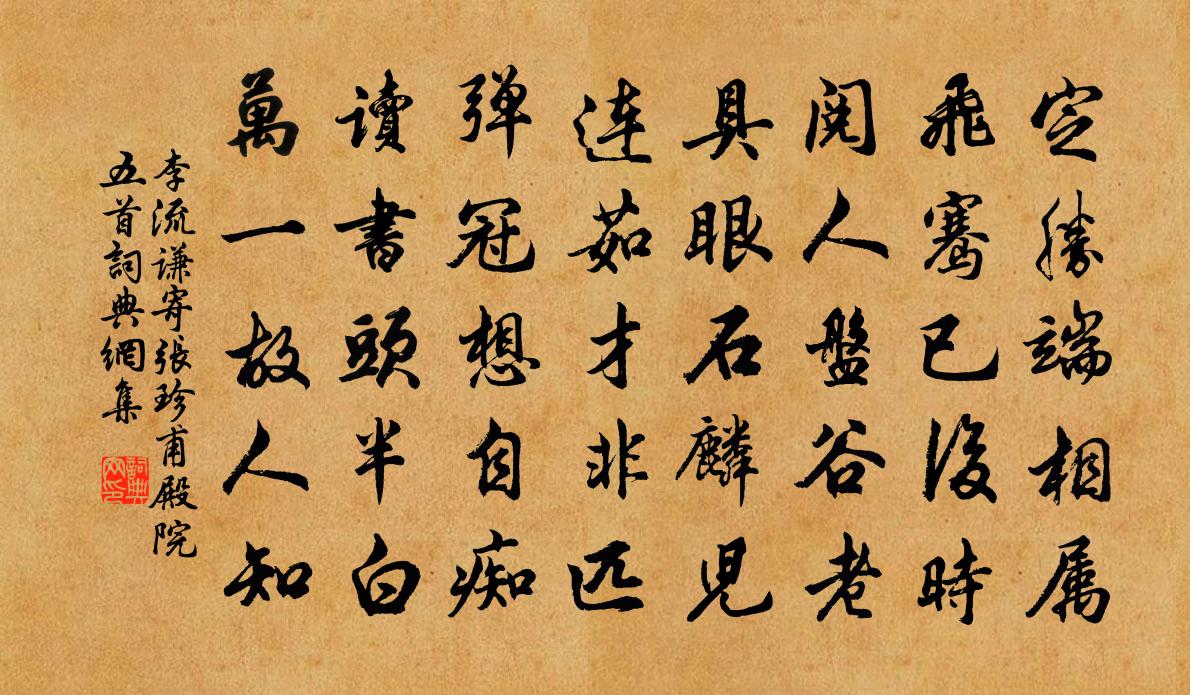 定勝端相属
飛騫已後時
閲人盤谷老
具眼石麟児
連茹才非匹
弹冠想自痴
讀書頭半白
萬一故人知
李流谦寄張珍甫殿院
五首詞典網集
詞典网印